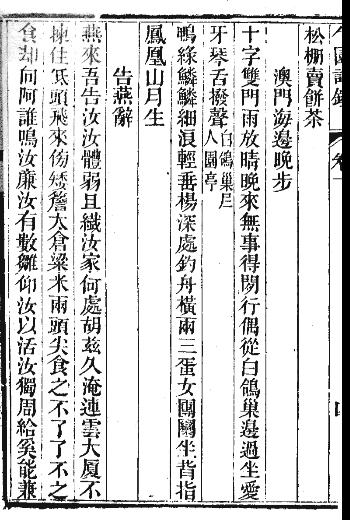 松棚賣餅茶
澳門海邊晚步
十字雙門雨放晴晚來無事得閒行偶從白鴿巢邊過坐愛
牙琴舌撥聲白鴿巢尼人園亭
鴨綠鱗鱗細浪輕垂楊深處釣舟橫兩三蛋女團圞坐背指
鳳凰山月生
告燕辭
燕來吾告汝汝體弱且纖汝家何處胡茲久淹連雲大厦不
揀住低頭飛來傍矮簷太倉粱米兩頭尖食之不了了不之
食却向阿誰鳴汝廉汝有數雛仰汝以活汝獨周給奚能兼